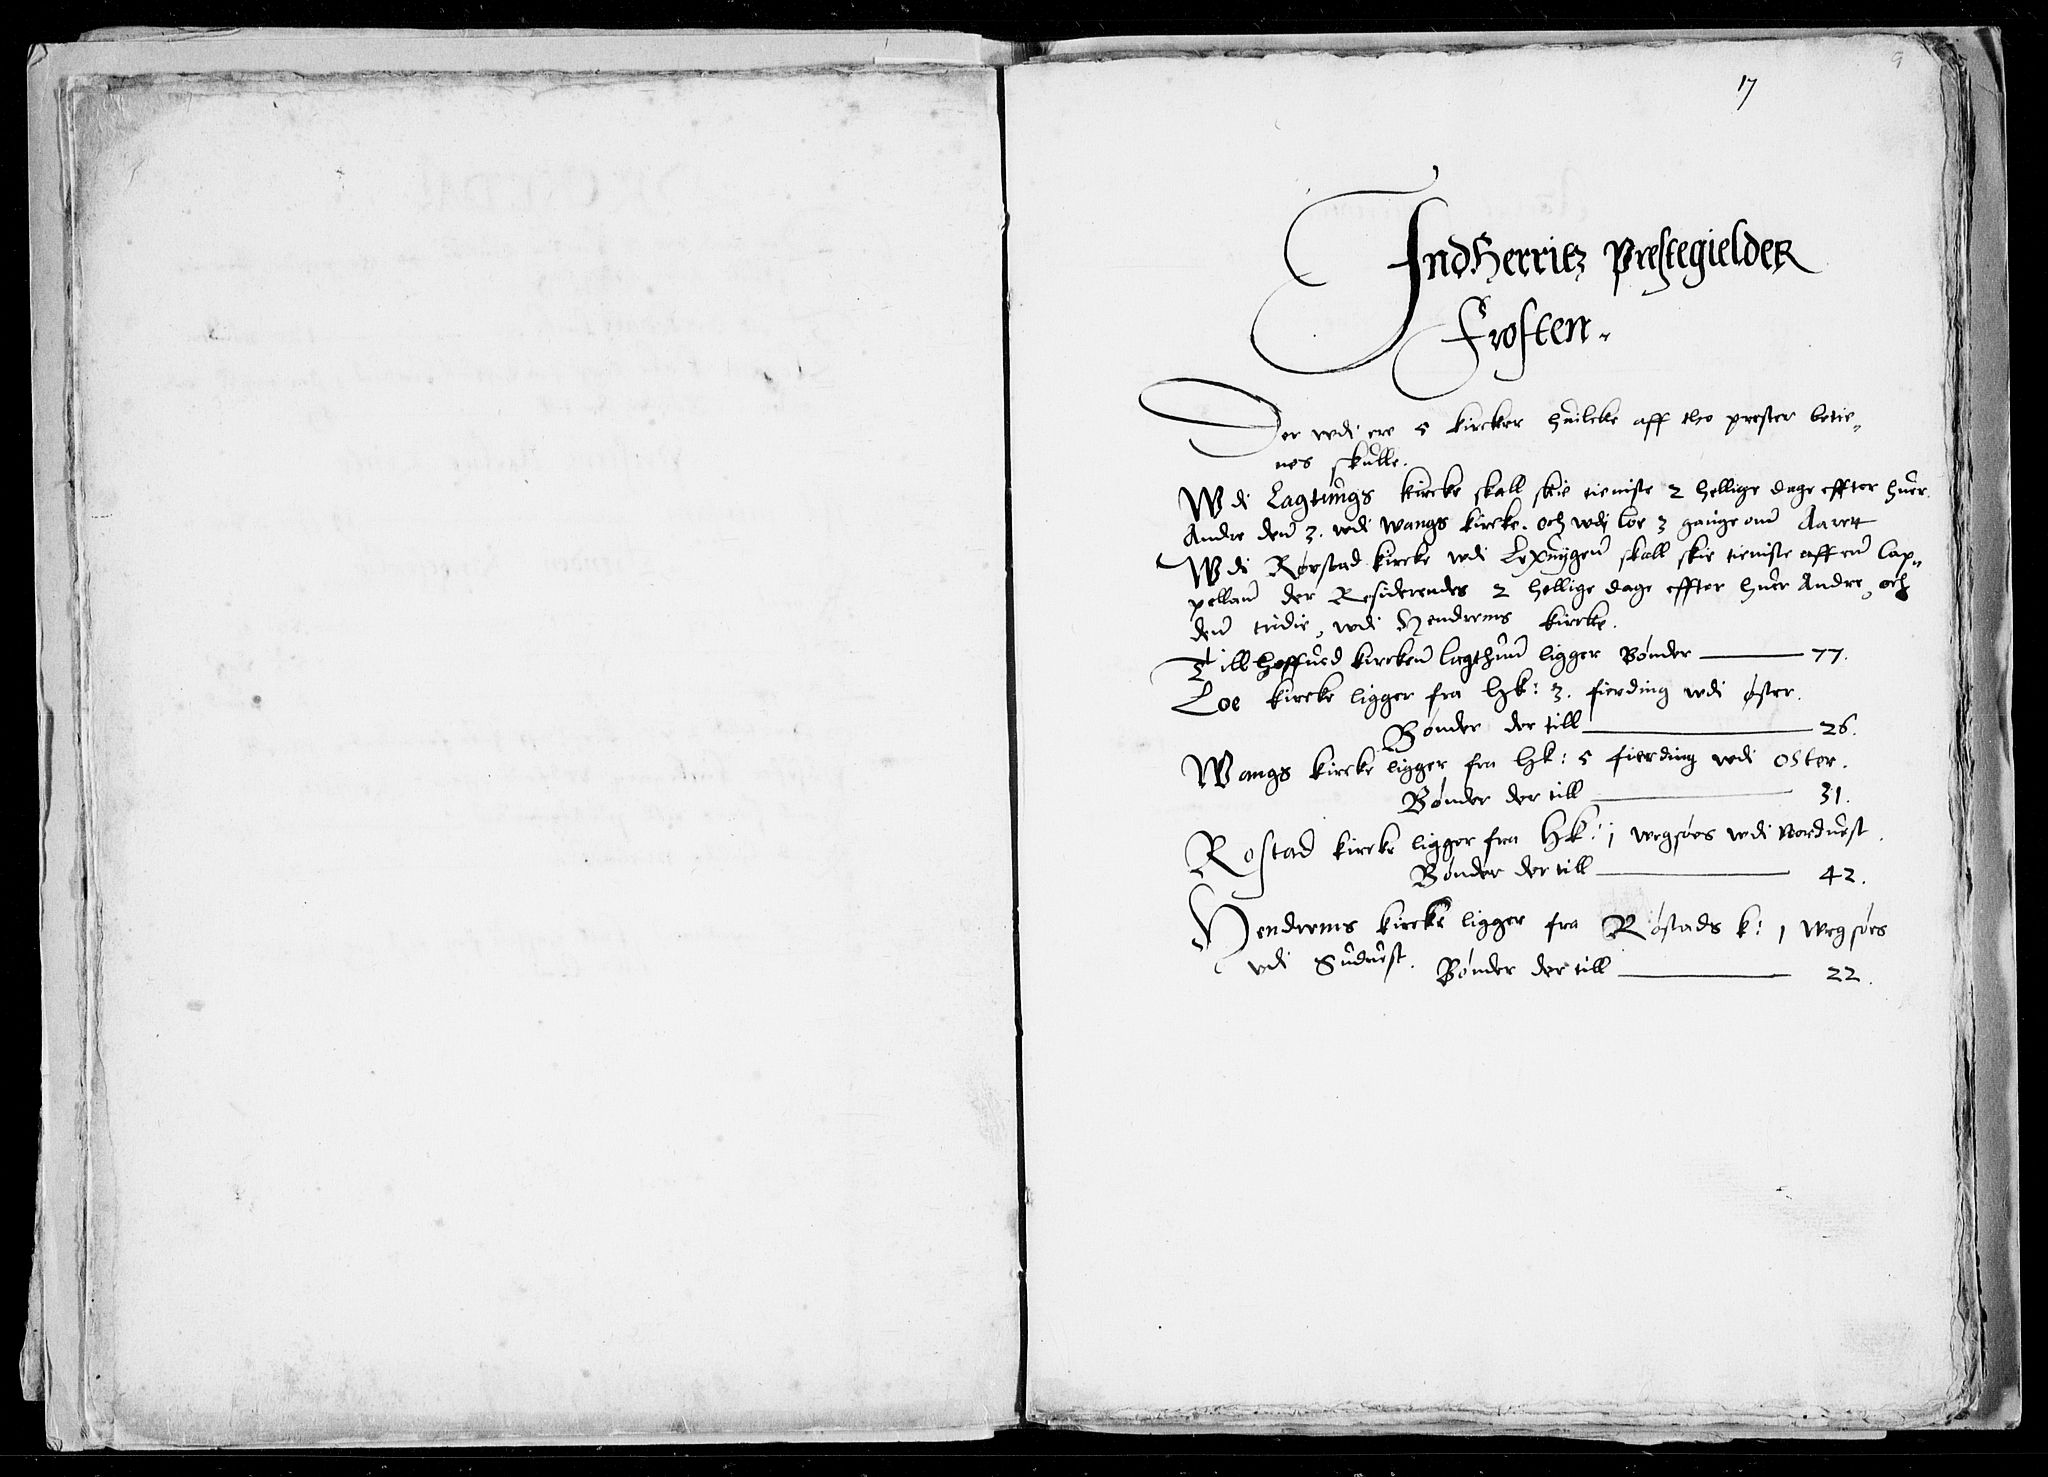 9
17
IndHerritz Prestegielder
Frosten.
Der vdi ere 5 kircker huilcke aff tho prester betie-
nes skulle.
Wdi Lagtungs kircke skall skie tieniste 2 hellige dage effter huer
Andre den 3. wdi Wangs kircke. och wdi Loe 3 gange om Aarett
Wdi Røstad kircke wdi Lexuygen skall skie tieniste aff en Cap-
pellan der Residerendes 2 hellige dage effter huer Andre, och
den tridie, wdi Hendrems kircke.
Till hoffued kircken Lagthun ligger Bønder 77.
Loe kircke ligger fra hk: 3. fierding wdi øster.
Bønder der till 26.
Wangs kircke ligger fra hk: 5 fierding wdi Oster.
Bønder der till 31.
Rostad kircke ligger fra Hk: 1 wegsøes wdi Norduest.
Bønder der till 42.
Hendrems kircke ligger fra Røstads k: 1 Wegsøes
vdi Suduest. Bønder der till 22.